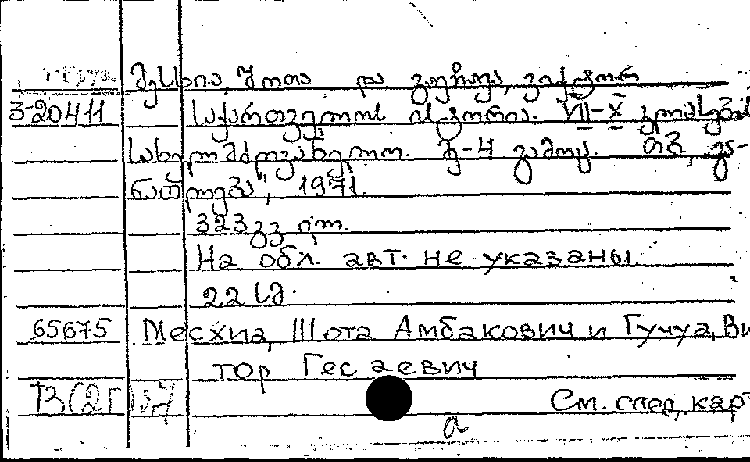 მესხია, შოთა და გუჩუა, ვიქტორ
3-20411 საქართველოს ისტორია. VII-X კლასების
სახელმძღვანელო. მე-4 გამოც. თბ., "გა-
ნათლება", 1971.
323 გვ. ილ.
На обл. авт. не указаны.
22 სმ.
65675 Месхиа, Шота Амбакович и Гучуа, Ви
тор Гесаевич
См. след. кар
а